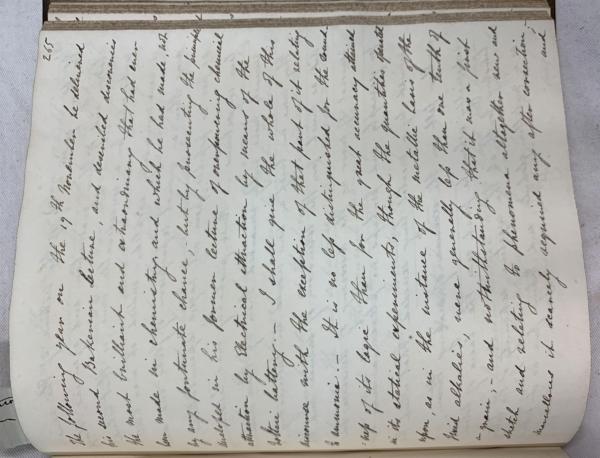 265
The following year on the 19th November he delivered
his second Bakerian Lecture, and described discoveries
the most brilliant and extraordinary that had ever
been made in chemistry, and which he had made not
by any fortunate chance, but by prosecuting the principle
developed in his former lecture of overpowering chemical
attraction by Electrical attraction by means of the
voltaic battery. – I shall give the whole of this
discourse with the exception of that part of it relating
to ammonia. – It is no less distinguished for the
ness of its logic than for the great accuracy attained
in its statical experiments, though the quantities operated
upon, as in the instance of the metallic bases of the
fixed alkalies, were generally less than one tenth of
a grain; – and notwithstanding that it was a first
sketch and relating to phenomena altogether new and
marvellous it scarcely required any after correction, –
and